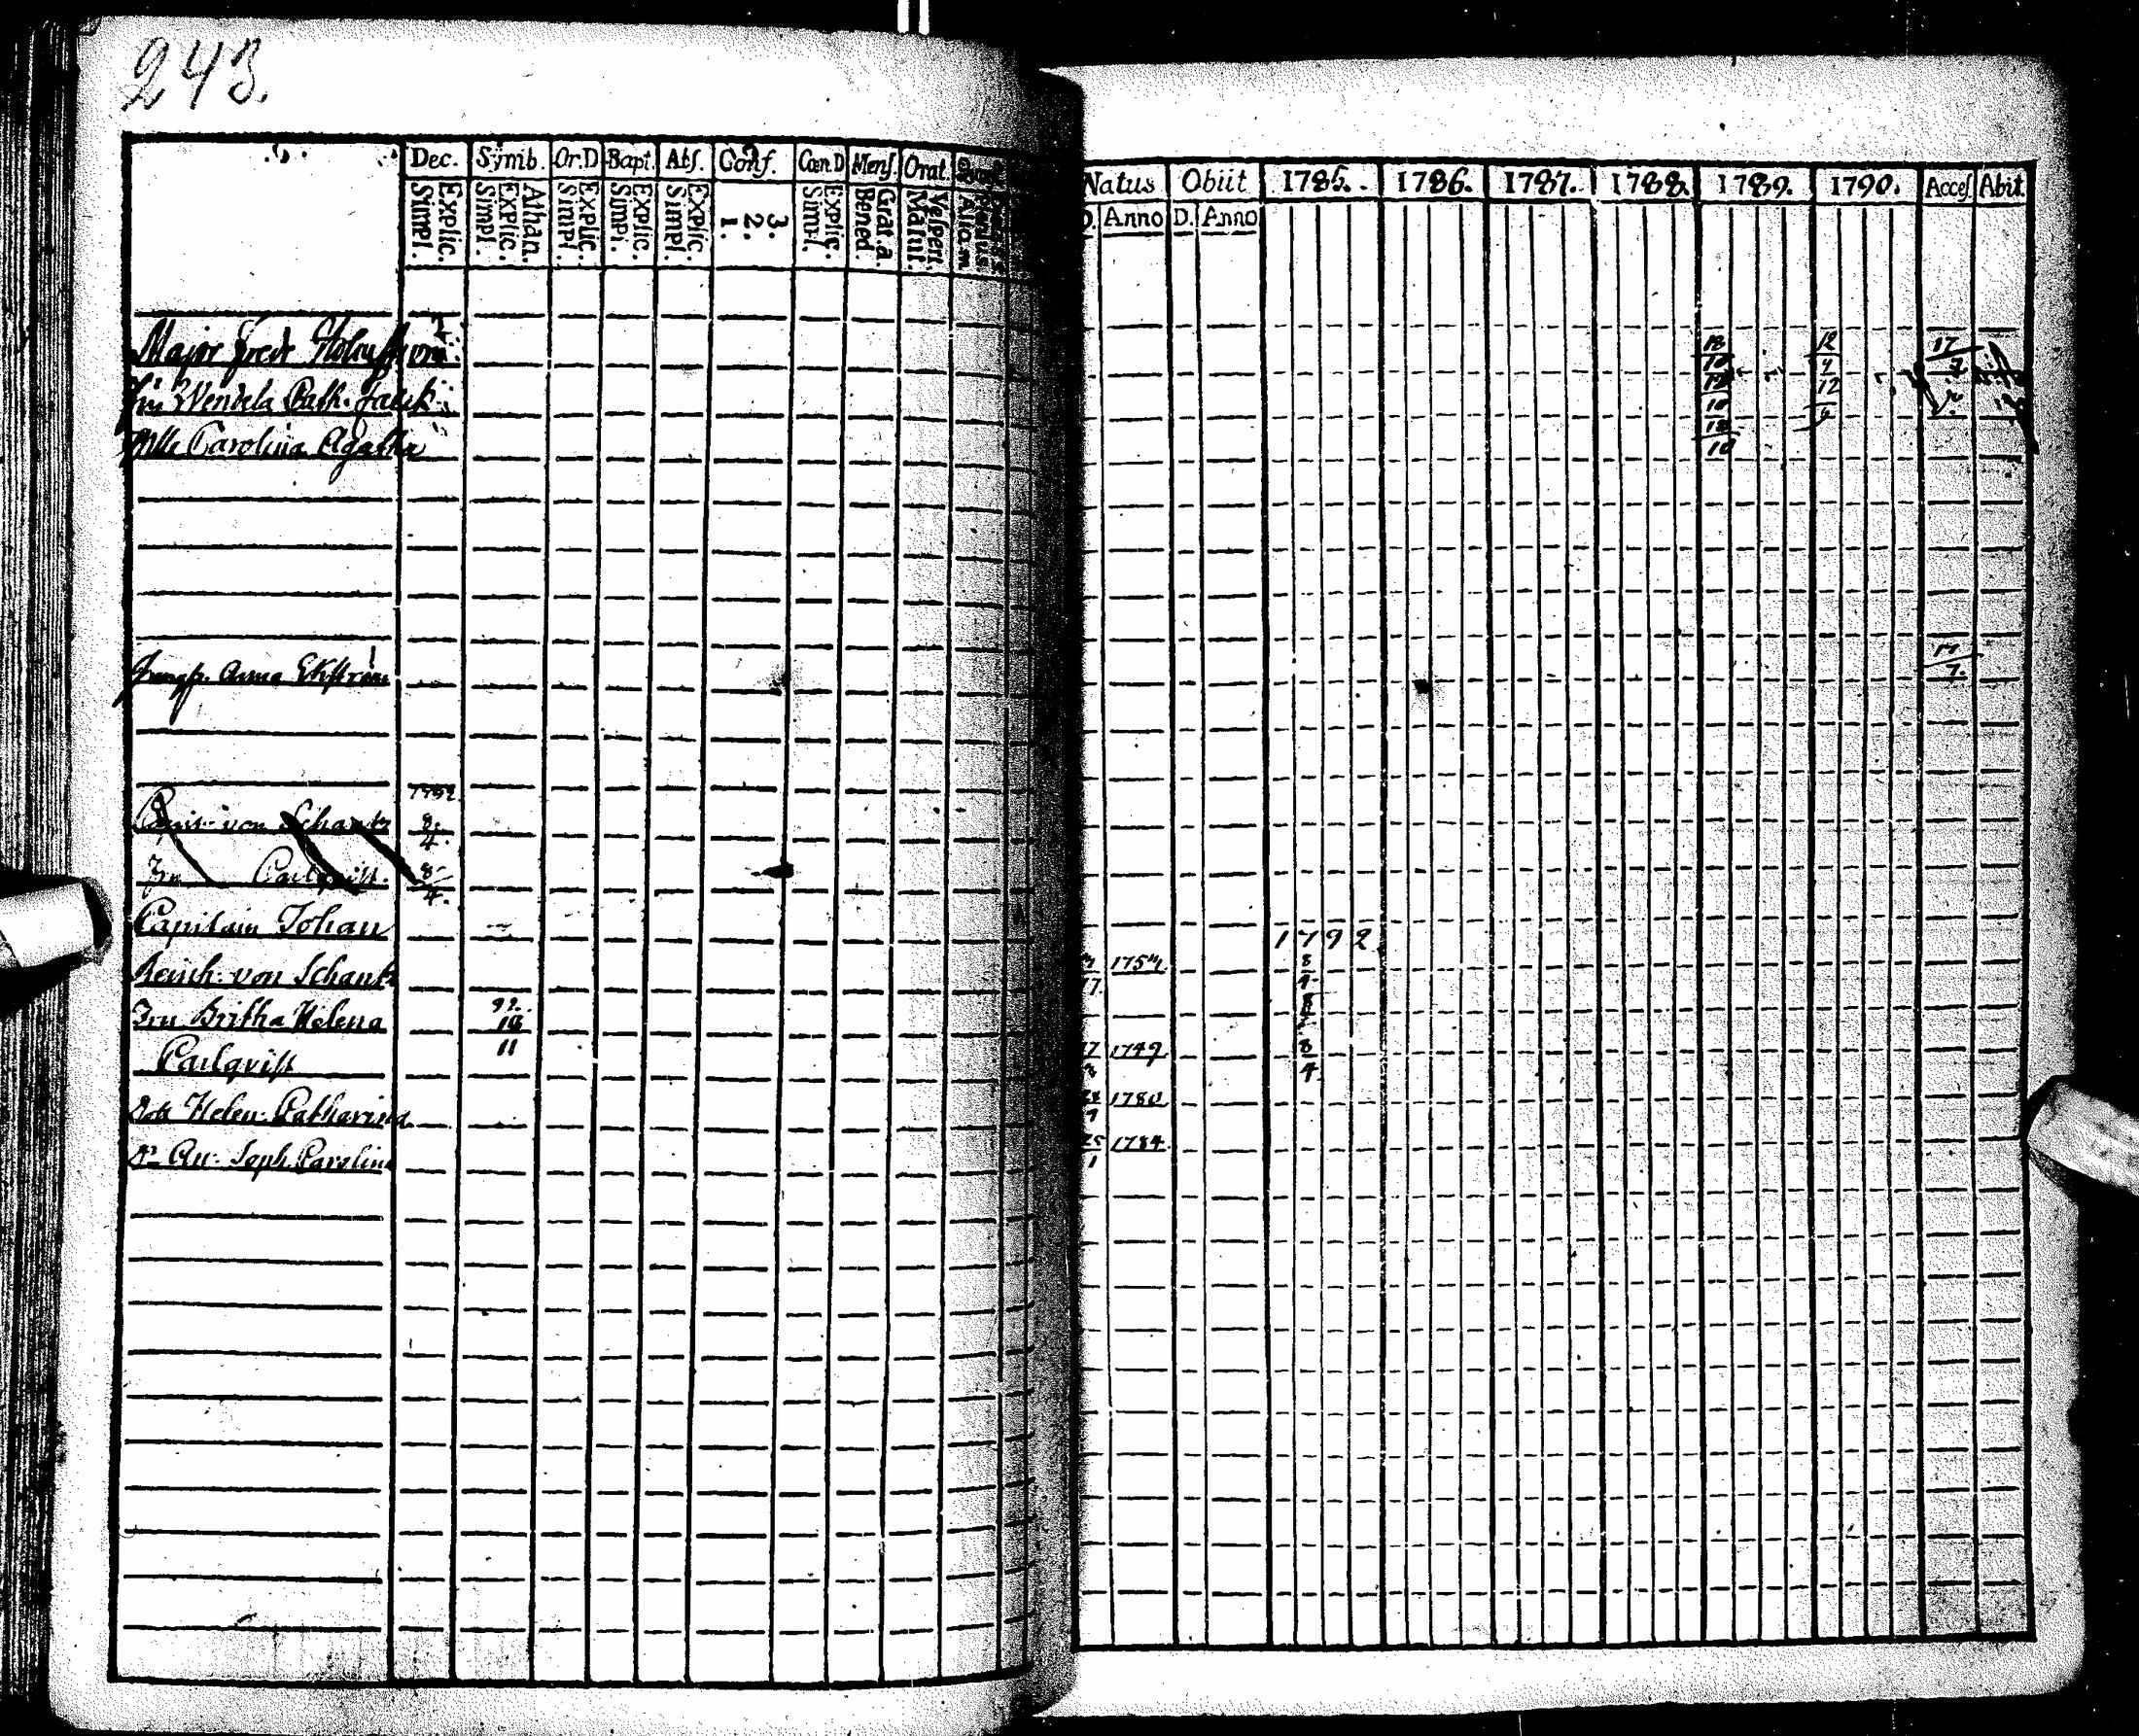 243.
Dec. Symb. Or.D Bapt. Abs. Conf. Cœn.D Mens. Orat.
Explic. Simpl. Athan. Explic. Simpl. Explic. Simpl. Explic. Simpl. Explic. Simpl. 3. 2. 1. Explic. Simpl. Grat.a. Bened. Vespert. Matut.
Natus Obiit 1785. 1786. 1787. 1788. 1789. 1790. Acces. Abit.
D. Anno D. Anno
Major Fredr
18 10 12 4 17 7
Fru Wendela Cath. Falck
18 10 12 4
Mlle Carolina Agatha
18 10
Jungf. Anna Ekström
17 7.
1792
von Schantz 8 4.
Fru Carlqvist. 8 4.
Capitain Johan
1792
Heinr: von Schantz
8 4
Fru Britha Helena 92. 18 11
Carlqvist
17 1749 8 4.
Dott Helen: Catharina
1780
Do An: Soph. Carolina
25 1 1784